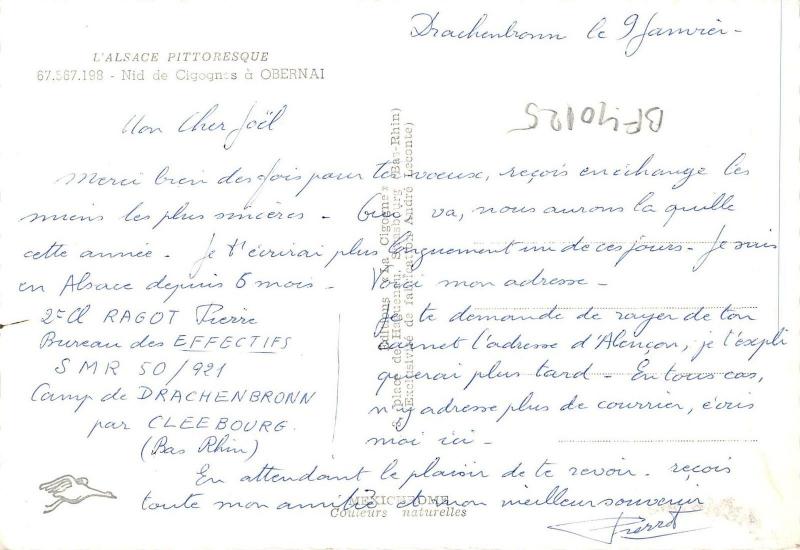 Drachenbronn le 9 Janvier -
L'ALSACE PITTORESQUE
67.567.198 - Nid de Cigognes à OBERNAI
BF40125
Mon Cher Joël
Merci bien des fois pour tes voeux, reçois en échange les
miens les plus sincères - Oui va, nous aurons la quille
cette année - Je t'écrirai plus longuement un de ces jours - Je suis
en Alsace depuis 6 mois - Voici mon adresse -
2e Cl RAGOT Pierre
Bureau des EFFECTIFS
SMR 50/921
Camp de DRACHENBRONN
par CLEEBOURG.
(Bas Rhin)
Je te demande de rayer de ton
carnet l'adresse d'Alençon, je t'expli
querai plus tard - En tous cas,
n'y adresse plus de courrier, écris
moi ici -
En attendant le plaisir de te revoir - reçois
toute mon amitié et mon meilleur souvenir
Pierrot
Editions «La Cigogne»
6, place de Haguenau, Strasbourg (Bas-Rhin)
(Exclusivité de fabrication André Leconte)
MEXICHROME
Couleurs naturelles